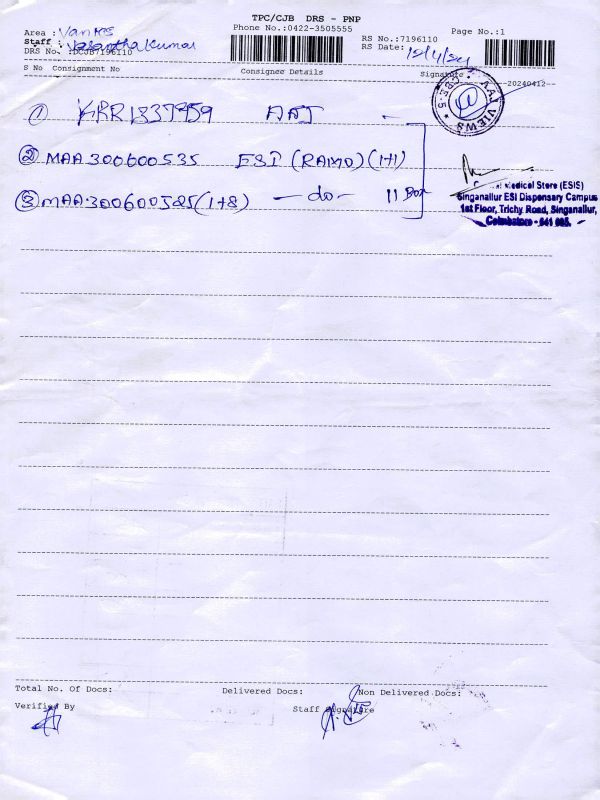 TPC/CJB DRS - PNP
Phone No.:0422-3505555
Page No.:1
Area :
RS No.:7196110
Staff : Vasantha Kumar
RS Date: 12/4/24
DRS No. :DCJB7196110
S No Consignment No Consignee Details Signature
20240412
① KRR1837959
② MAA300600535 ESI (RAMD) (1+1)
③ MAA300600525 (1+8) - do - 11 Box
Medical Store (ESIS)
Singanallur ESI Dispensary Campus
1st Floor, Trichy Road, Singanallur,
Coimbatore - 641 005.
Total No. Of Docs: Delivered Docs: Non Delivered Docs:
Verified By Staff Signature